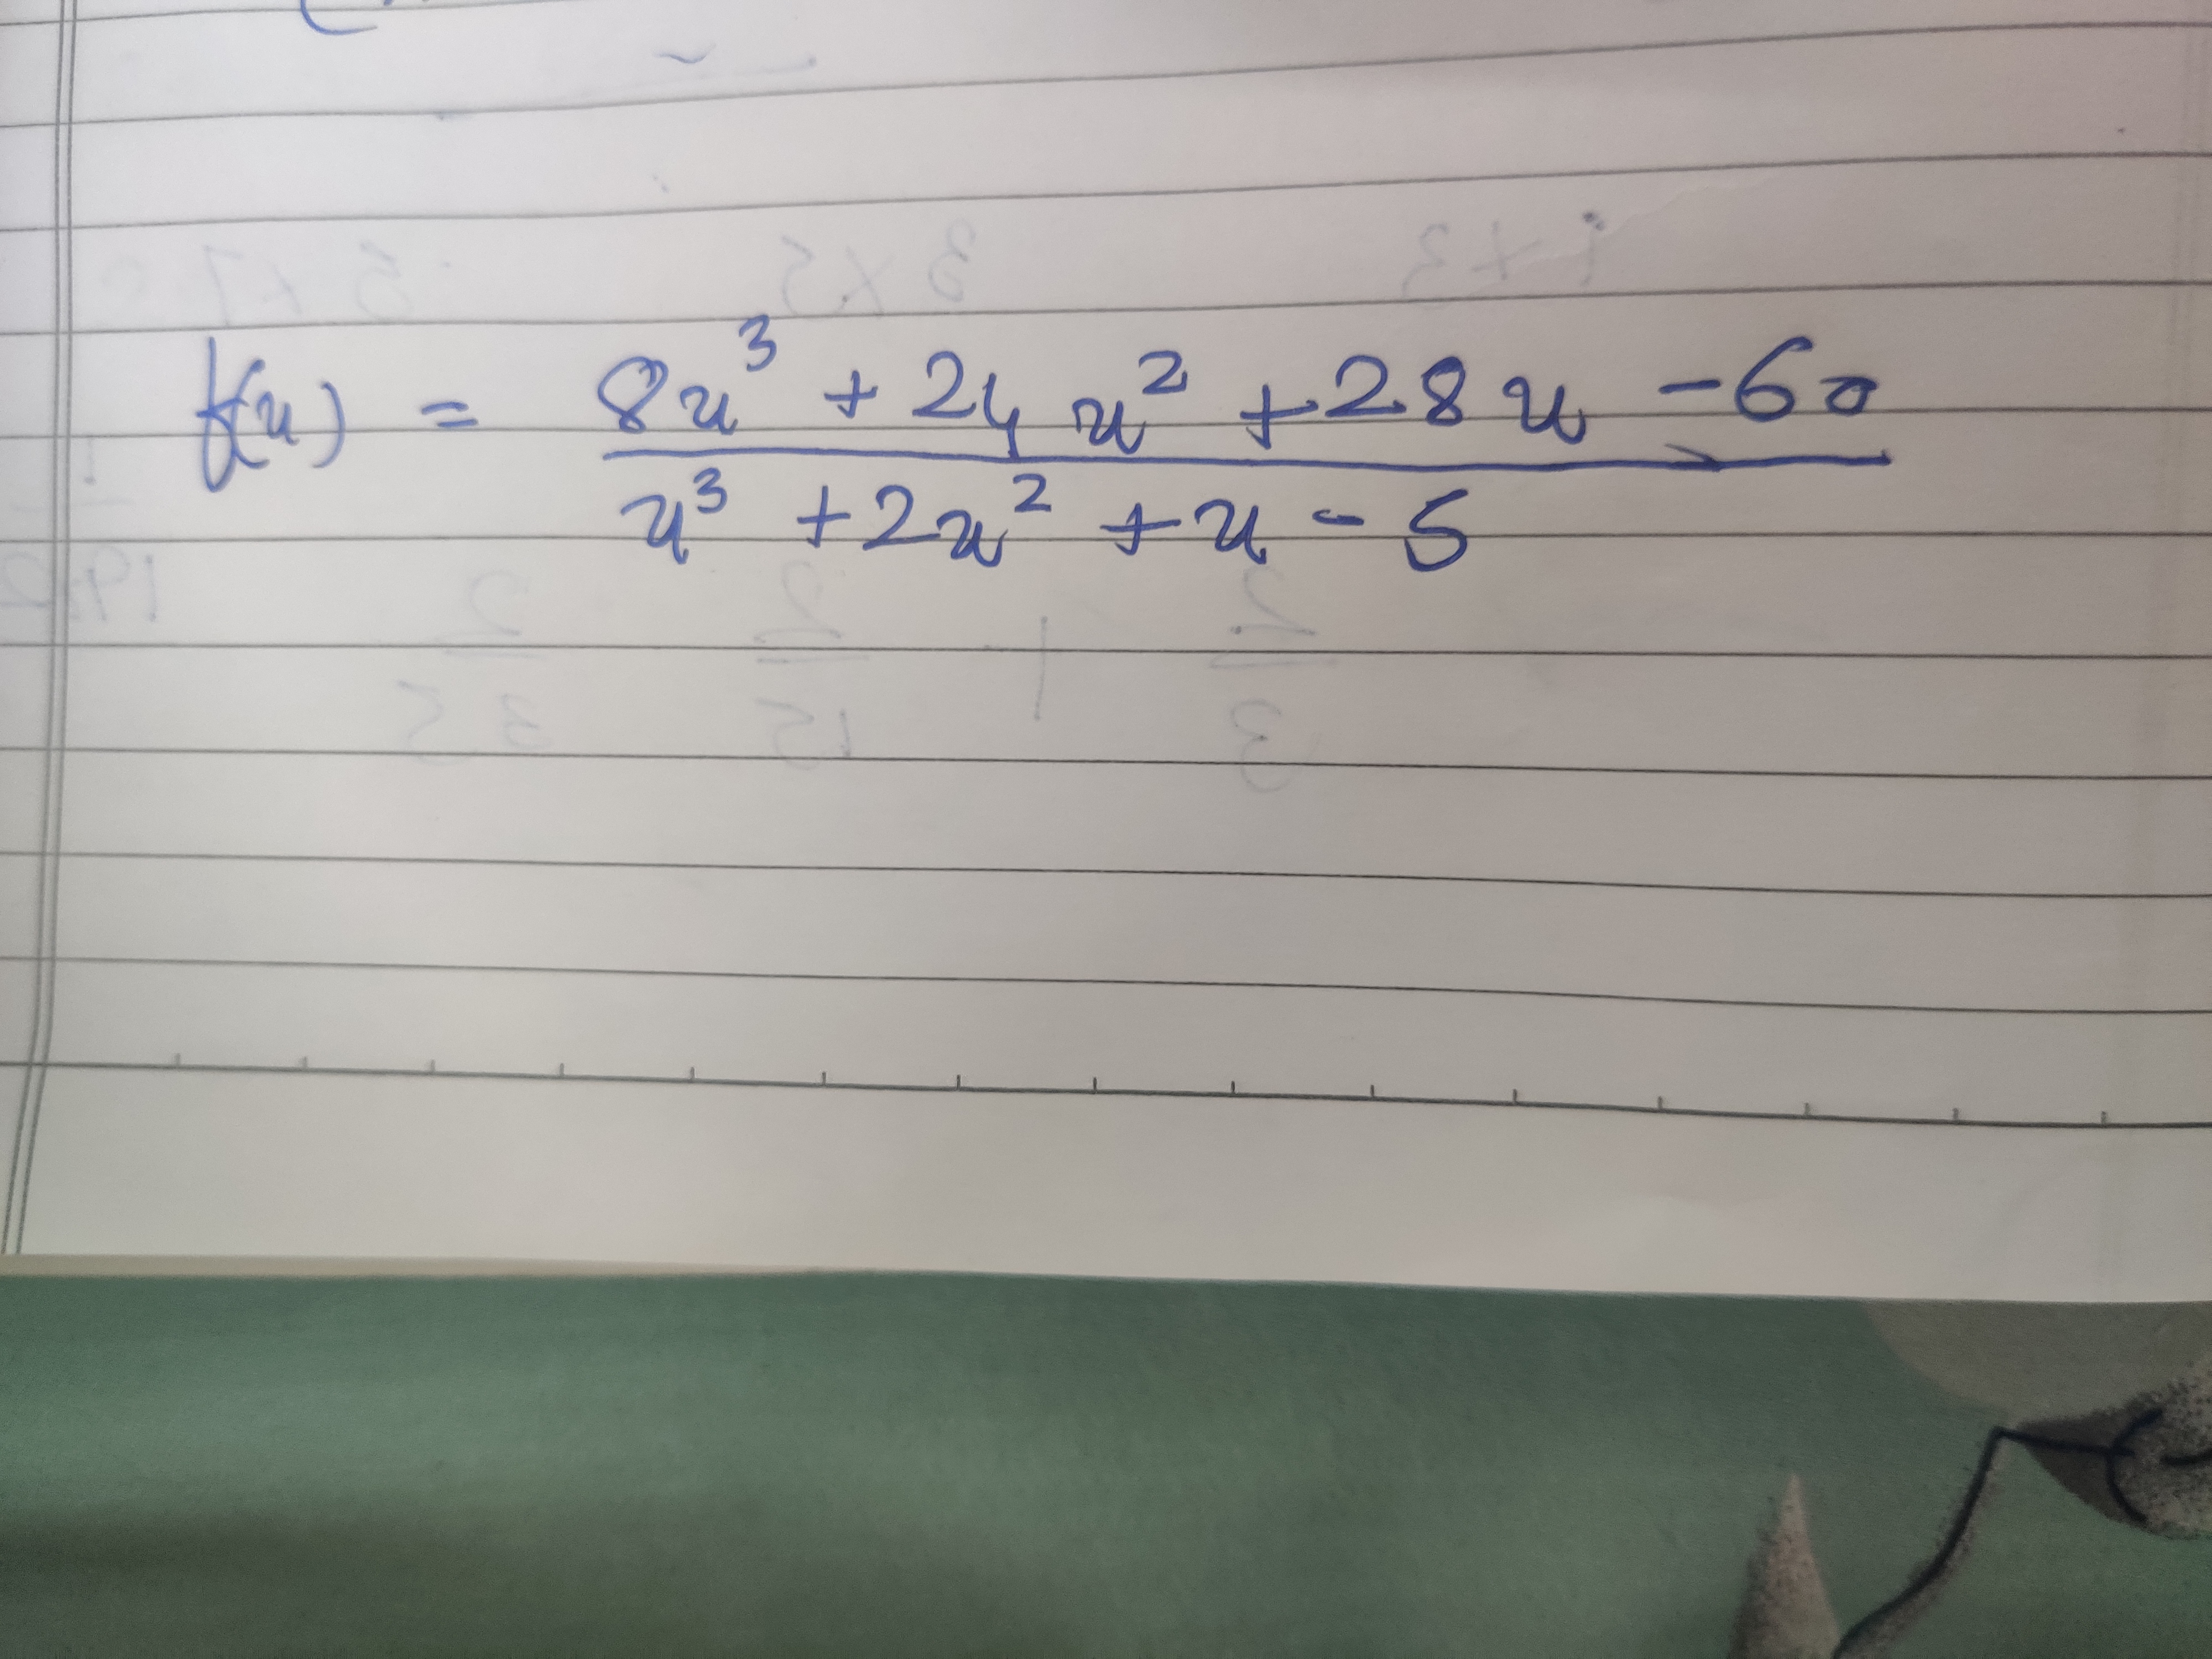 f(x) = 8x³ + 24x² + 28x - 60
x³ + 2x² + x - 5